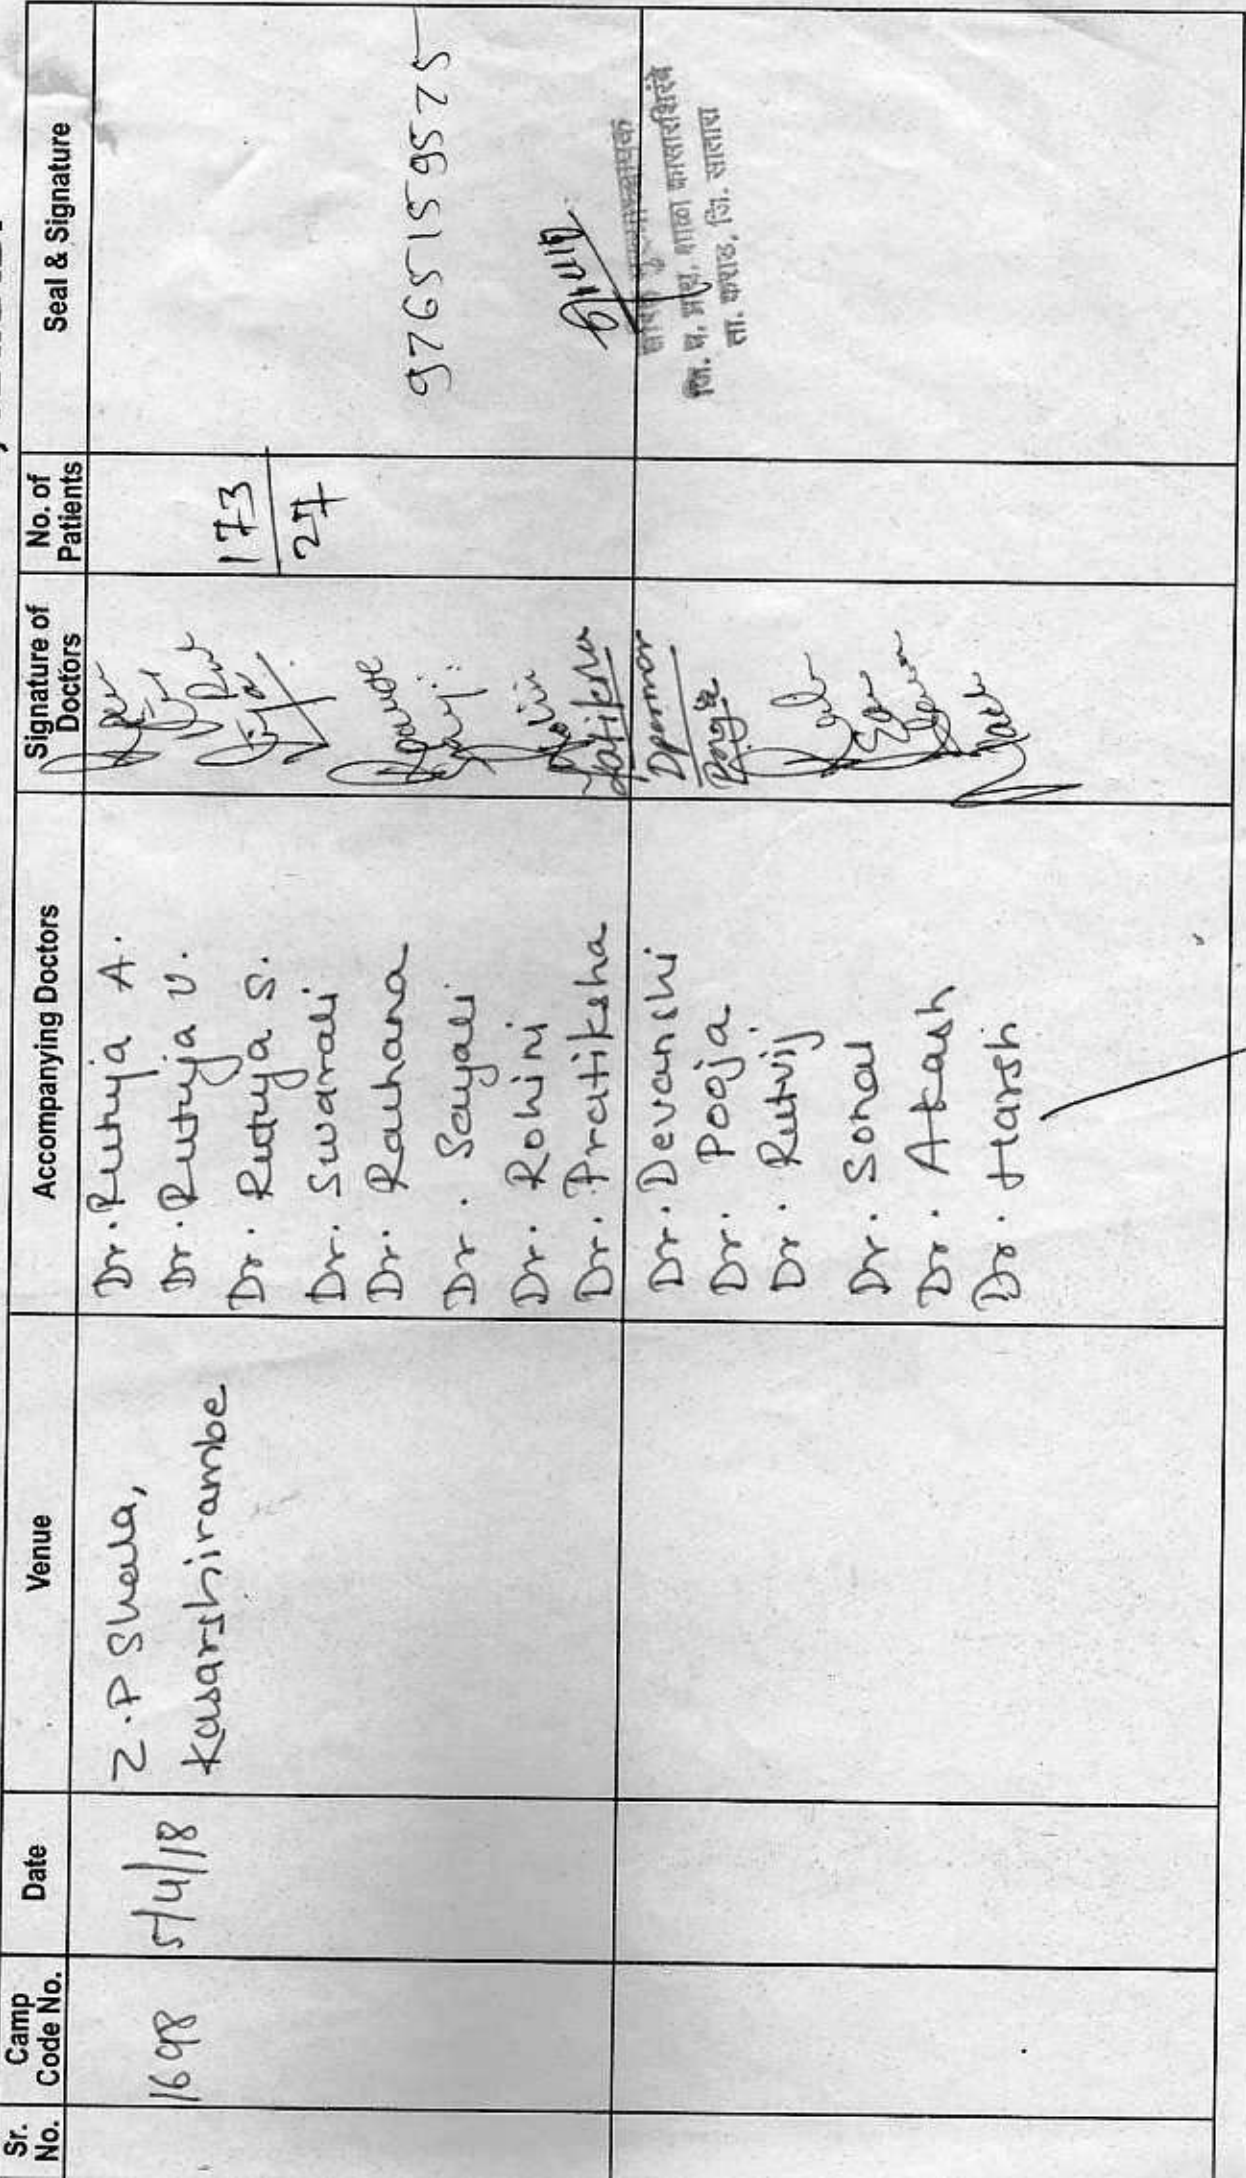 Sr. No.
Camp Code No.
Date
Venue
Accompanying Doctors
Signature of Doctors
No. of Patients
Seal & Signature
1698
5/4/18
Z.P Shala,
Kasarshirambe
Dr. Rutuja A.
Dr. Rutuja V.
Dr. Rutuja S.
Dr. Swarali
Dr. Raihana
Dr. Sayali
Dr. Rohini
Dr. Pratiksha
Dr. Devanshi
Dr. Pooja
Dr. Rutvij
Dr. Sonal
Dr. Akash
Dr. Harsh
173
27
9765159575
जि. प. प्राथ. शाळा कासारशिरंबे
ता. कराड, जि. सातारा